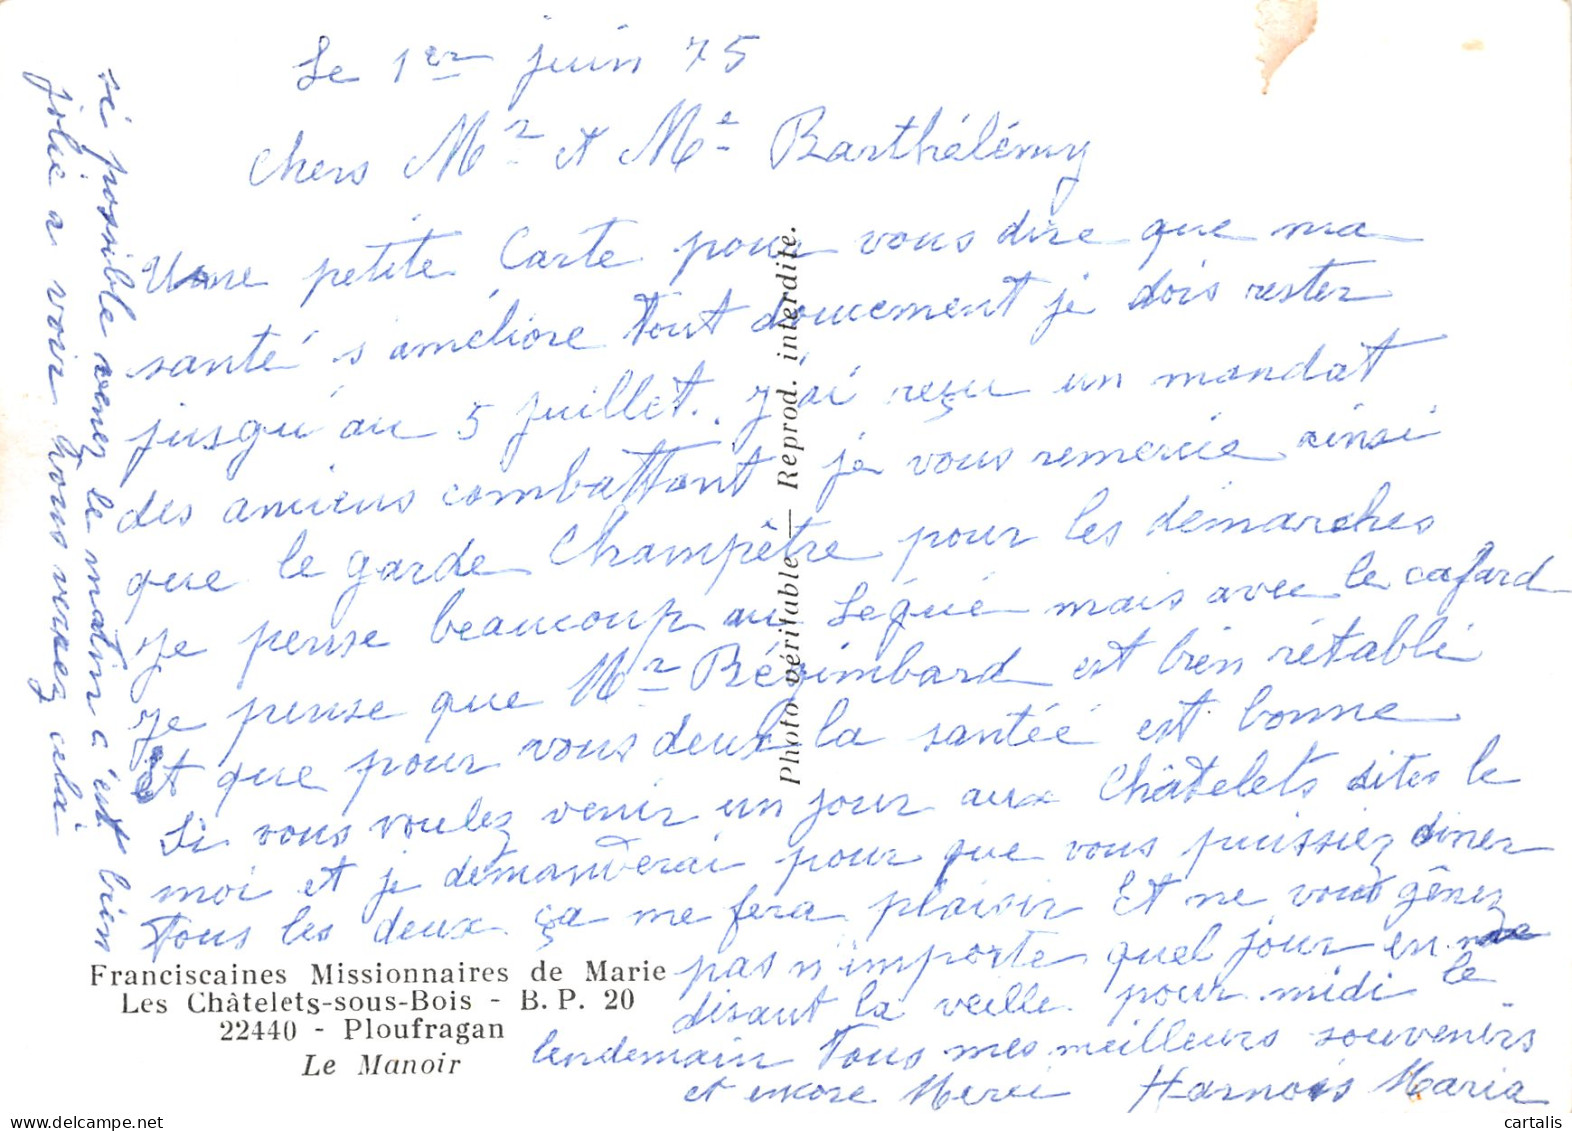 Le 1er juin 75
chers Mr et Me Barthélémy
Une petite Carte pour vous dire que ma
santé s'améliore tout doucement je dois rester
jusqu'au 5 juillet. J'ai reçu un mandat
des anciens combattant je vous remercie ainsi
que le garde Champêtre pour les démarches
je pense beaucoup au Légué mais avec le cafard
je pense que Mr Bézimbard est bien rétabli
et que pour vous deux la santéé est bonne
Si vous voulez venir un jour aux Châtelets dites le
moi et je demanderai pour que vous puissiez diner
Tous les deux ça me fera plaisir Et ne vous gênez
pas n'importe quel jour en me
disant la veille pour midi le
lendemain Tous mes meilleurs souvenirs
et encore Merci Harnois Maria
si possible venez le matin c'est bien
jolie a voir vous verrez cela
Photo véritable — Reprod. interdite.
Franciscaines Missionnaires de Marie
Les Châtelets-sous-Bois - B. P. 20
22440 - Ploufragan
Le Manoir
cartalis